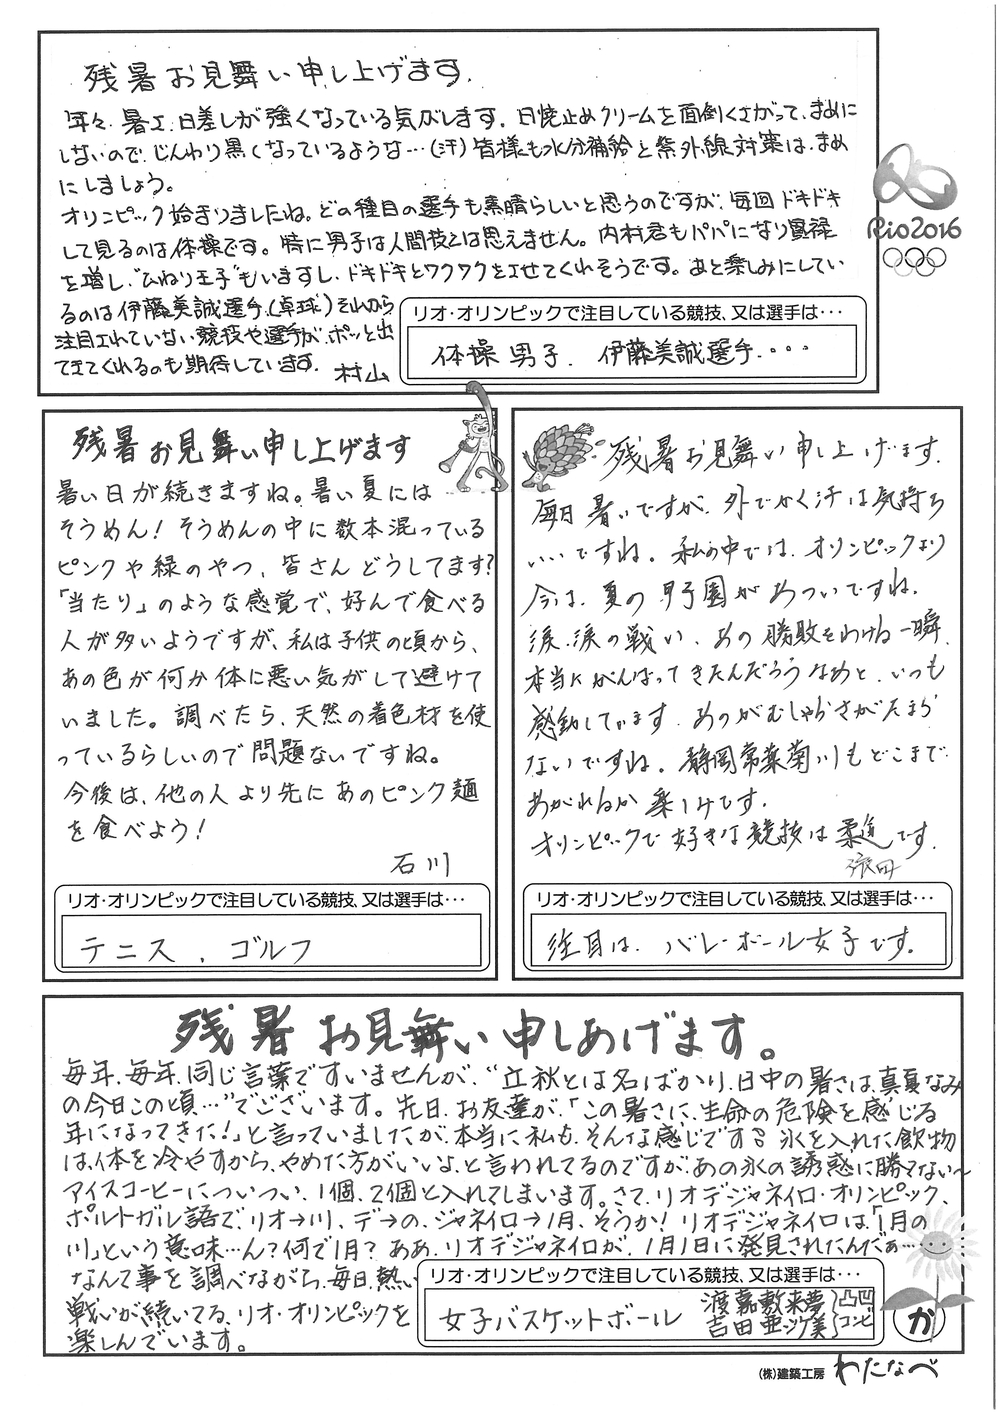 残暑お見舞い申し上げます.
年々、暑さ、日差しが強くなっている気がします。日焼止めクリームを面倒くさがって、まめに
しないので、じんわり黒くなっているような…(汗) 皆様も水分補給と紫外線対策は、まめ
にしましょう。
オリンピック始まりましたね。どの種目の選手も素晴らしいと思うのですが、毎回ドキドキ
して見るのは体操です。特に男子は人間技とは思えません。内村君もパパになり貫禄
を増し、"ひねり王子"もいますし、ドキドキとワクワクをさせてくれそうです。あと楽しみにしてい
るのは伊藤美誠選手(卓球)それから
注目されていない競技や選手が、ポッと出
てきてくれるのも期待しています. 村山
リオ・オリンピックで注目している競技、又は選手は・・・
体操男子. 伊藤美誠選手・・・・
Rio2016
残暑お見舞い申し上げます
暑い日が続きますね。暑い夏には
そうめん!そうめんの中に数本混っている
ピンクや緑のやつ、皆さんどうしてます?
「当たり」のような感覚で、好んで食べる
人が多いようですが、私は子供の頃から、
あの色が何か体に悪い気がして避けて
いました。調べたら、天然の着色材を使
っているらしいので問題ないですね。
今後は、他の人より先にあのピンク麺
を食べよう!
石川
リオ・オリンピックで注目している競技、又は選手は・・・
テニス、ゴルフ
残暑お見舞い申し上げます.
毎日暑いですが、外でかく汗は気持ち
いいですね。私の中では、オリンピックより
今は、夏の甲子園があついですね.
涙、涙の戦い、あの勝敗をわける一瞬.
本当にがんばってきたんだろうなあと、いつも
感動しています. あのがむしゃらさがたまら
ないですね。静岡常葉菊川もどこまで
あがれるか楽しみです.
オリンピックで好きな競技は柔道です.
リオ・オリンピックで注目している競技、又は選手は・・・
注目は、バレーボール女子です。
残暑お見舞い申しあげます。
毎年、毎年、同じ言葉ですいませんが、"立秋とは名ばかり、日中の暑さは、真夏なみ
の今日この頃…"でございます。先日、お友達が、「この暑さに、生命の危険を感じる
年になってきた!」と言っていましたが、本当に私も、そんな感じです。氷を入れた飲物
は、体を冷やすから、やめた方がいいよと言われてるのですが、あの氷の誘惑に勝てない〜
アイスコーヒーについつい、1個、2個と入れてしまいます。さて、リオデジャネイロ・オリンピック、
ポルトガル語で、リオ→川、デ→の、ジャネイロ→1月、そうか!リオデジャネイロは「1月の
川」という意味…ん?何で1月?ああ、リオデジャネイロが、1月1日に発見されたんだぁ…
なんて事を調べながら、毎日、熱い
戦いが続いてる、リオ・オリンピックを
楽しんでいます。
リオ・オリンピックで注目している競技、又は選手は・・・
女子バスケットボール 渡嘉敷来夢 吉田亜沙美 凸凹コンビ
か
(株)建築工房 わたなべ